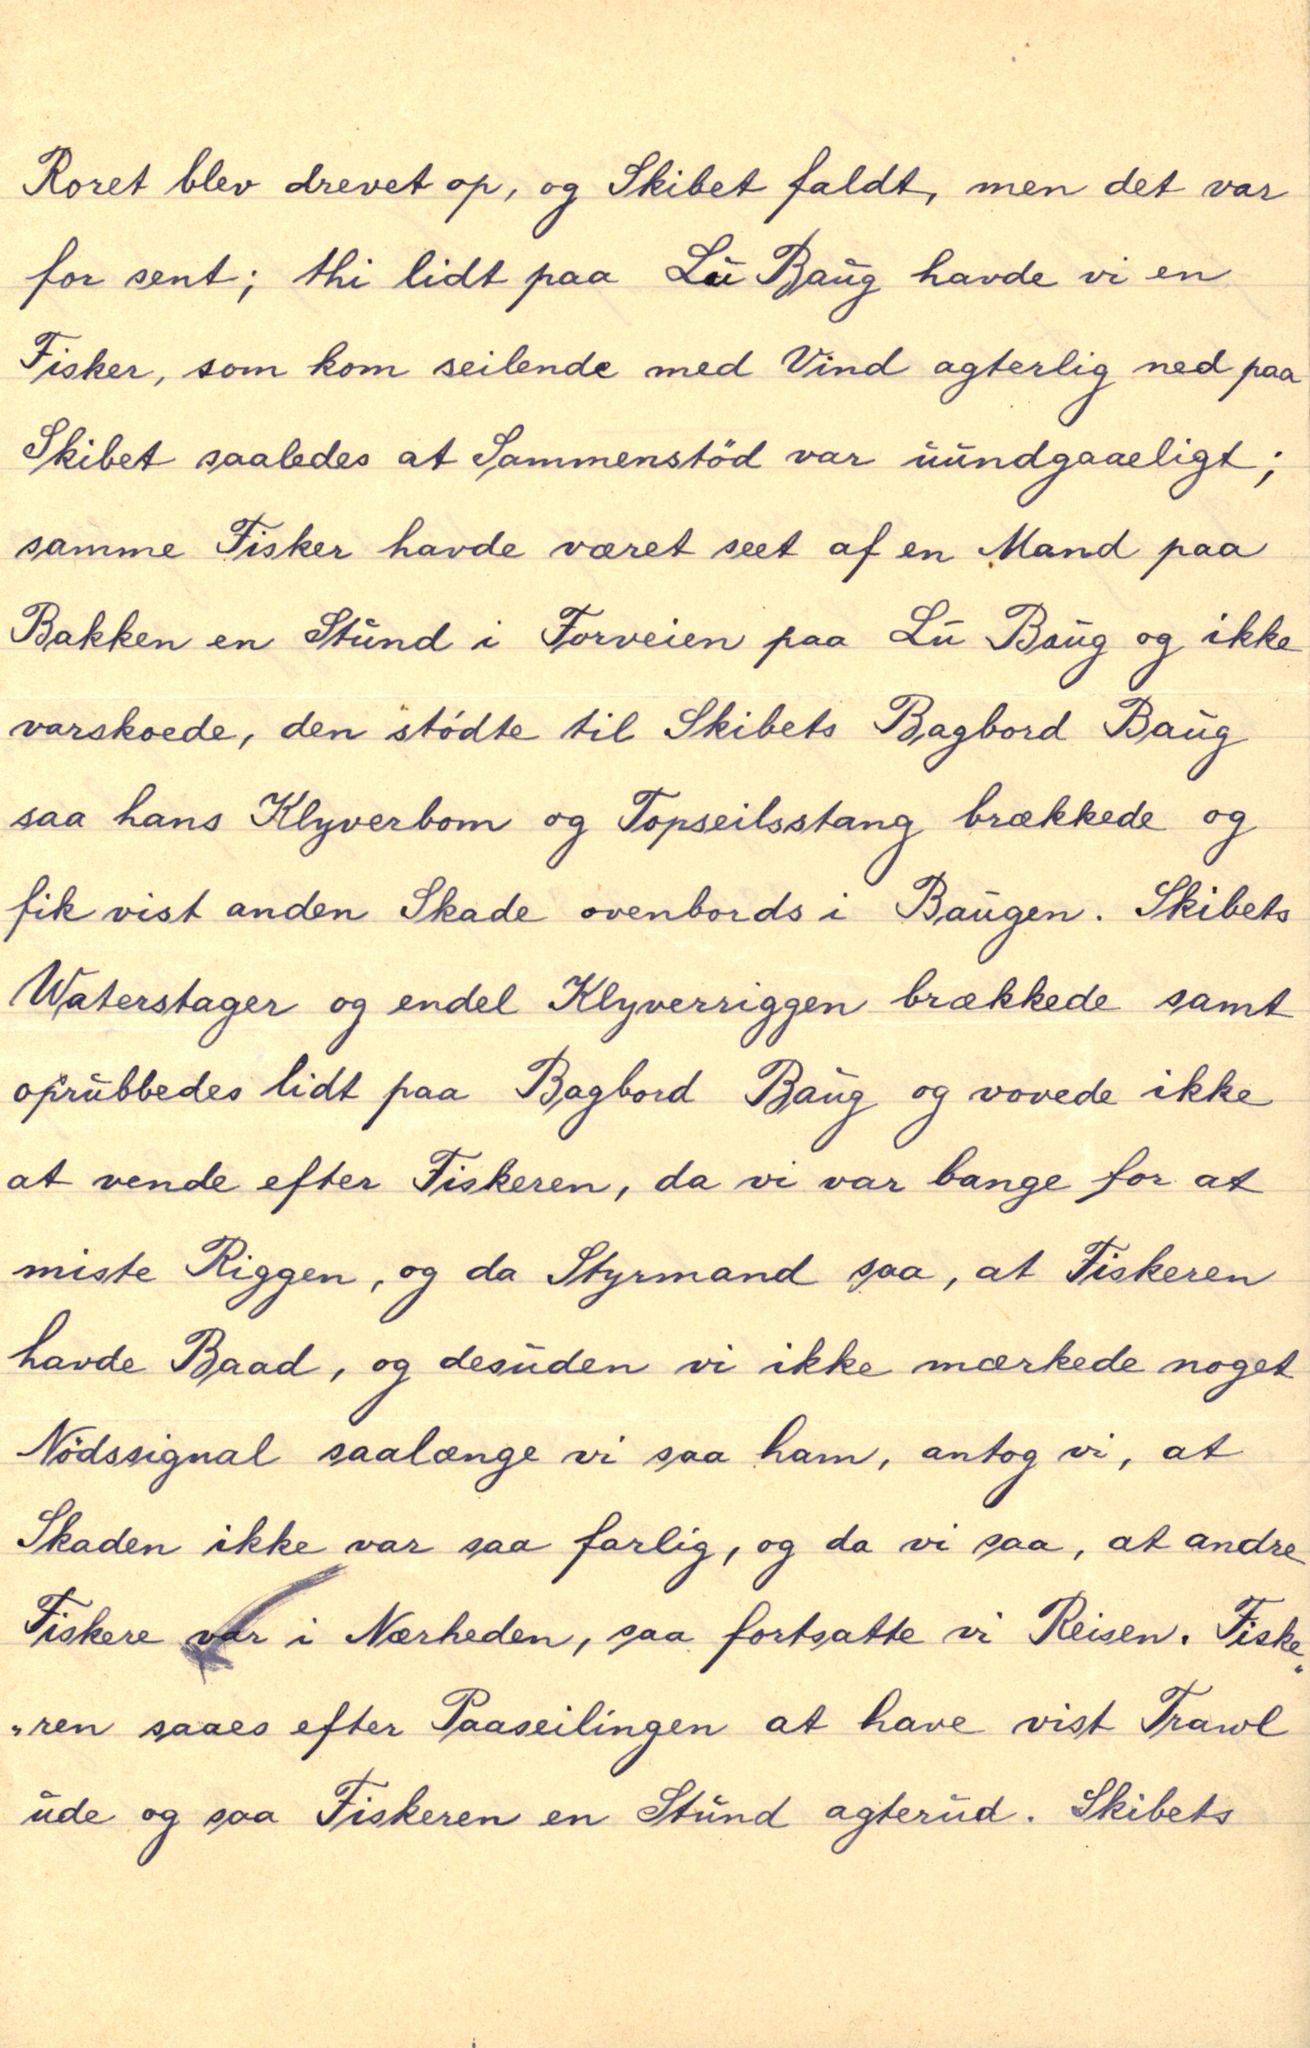 Roret blev drevet op, og Skibet faldt, men det var
for sent; thi lidt paa Lu Baug havde vi en
Fisker, som kom seilende med Vind agterlig ned paa
Skibet saaledes at Sammenstöd var uundgaaeligt;
samme Fisker havde været seet af en Mand paa
Bakken en Stund i Forveien paa Lu Baug og ikke
varskoede, den stödte til Skibets Bagbord Baug
saa hans Klyverbom og Topseilsstang brækkede og
fik vist anden Skade ovenbords i Baugen. Skibets
Waterstager og endel Klyverriggen brækkede samt
oprubbedes lidt paa Bagbord Baug og vovede ikke
at vende efter Fiskeren, da vi var bange for at
miste Riggen, og da Styrmand saa, at Fiskeren
havde Baad, og desuden vi ikke mærkede noget
Nödssignal saalænge vi saa ham, antog vi, at
Skaden ikke var saa farlig, og da vi saa, at andre
Fiskere var i Nærheden, saa fortsatte vi Reisen. Fiske„
„ren saaes efter Paaseilingen at have vist Trawl
ude og saa Fiskeren en Stund agterud. Skibets